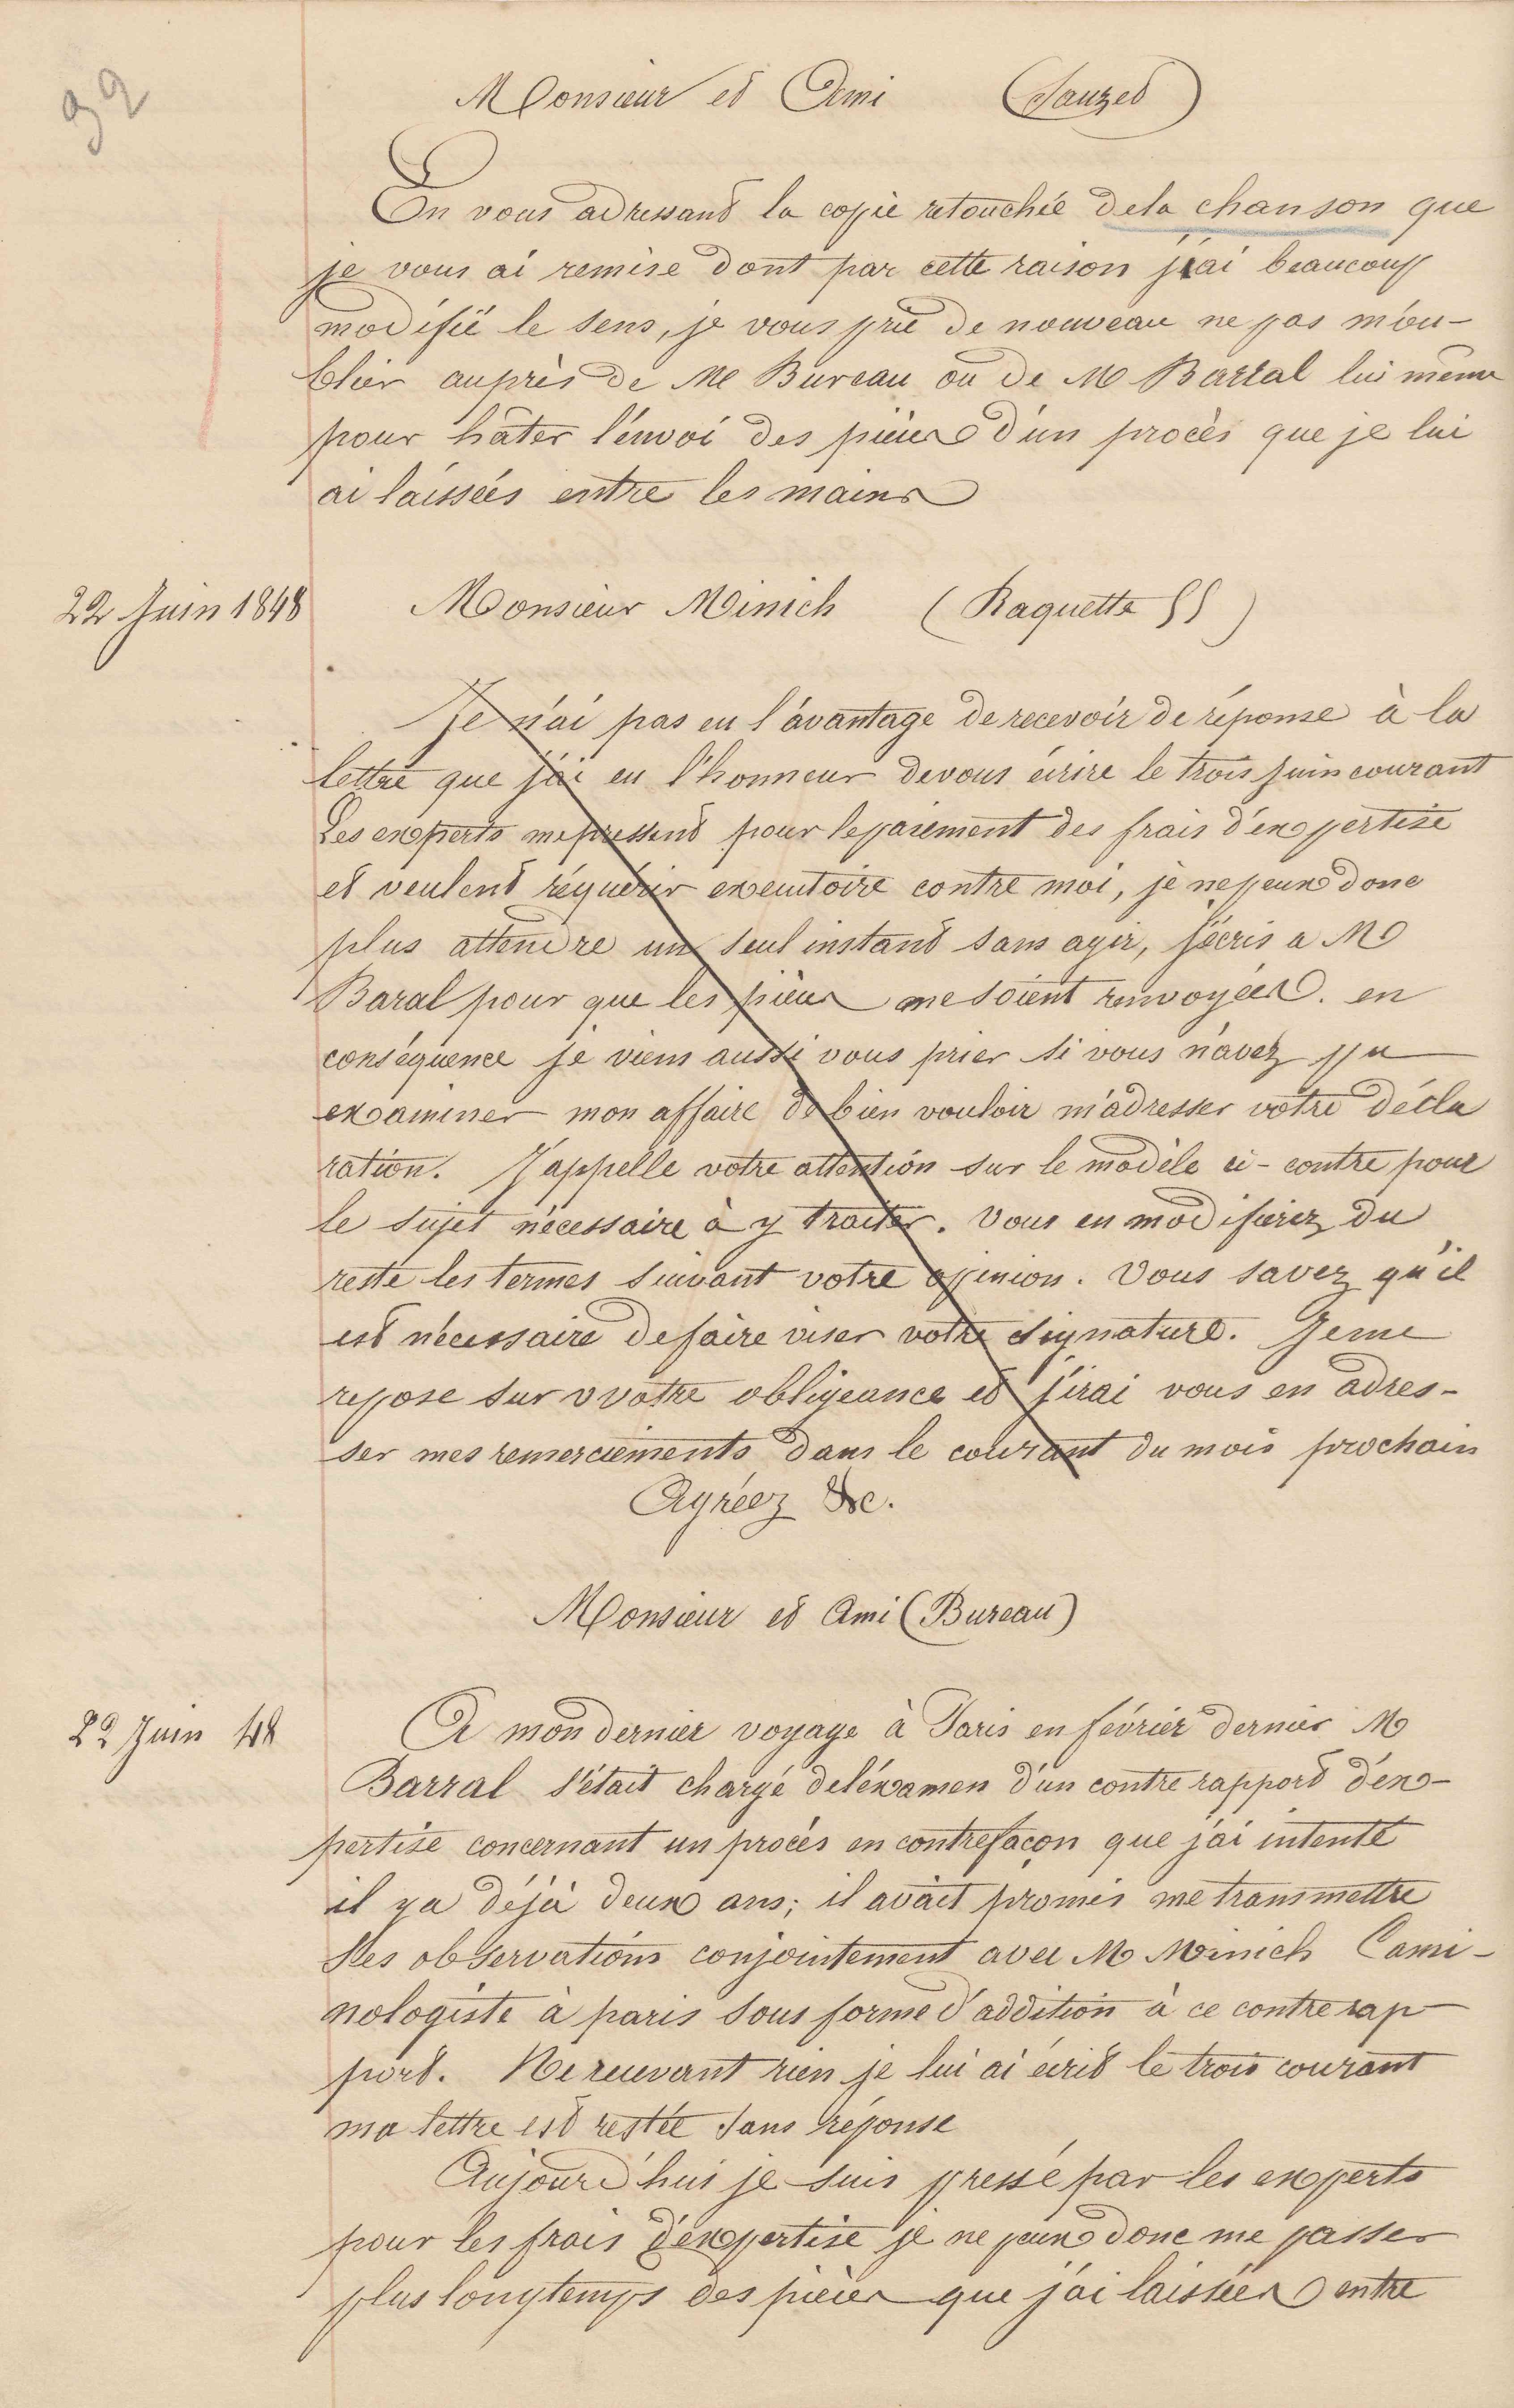 92
Monsieur et Ami (Sauzet)
En vous adressant la copie retouchée dela chanson que
je vous ai remise dont par cette raison j'ai beaucoup
modifié le sens, je vous prie de nouveau ne pas m'ou-
blier auprès de Me Bureau ou de M Barral lui même
pour hâter l'envoi des pièces d'un procès que je lui
ai laissées entre les mains
22 Juin 1848 Monsieur Minich (Raquette 55)
Je n'ai pas eu l'avantage de recevoir de réponse à la
lettre que j'ai eu l'honneur devous écrire le trois juin courant
Les experts me pressent pour le paiement des frais d'expertise
et veulent réquérir executoire contre moi, je ne peux donc
plus attendre un seul instant sans agir, j'écris a M
Baral pour que les pièces me soient renvoyées. en
conséquence je viens aussi vous prier si vous n'avez pu
examiner mon affaire de bien vouloir m'adresser votre décla
ration. J'appelle votre attention sur le modèle ci-contre pour
le sujet nécessaire à y traiter. Vous en modifierez du
reste les termes suivant votre opinion. Vous savez qu'il
est nécessaire de faire viser votre signature. Je me
repose sur v votre obligeance et j'irai vous en adres-
ser mes remerciements dans le courant du mois prochain
Agréez &c.
Monsieur et Ami (Bureau)
22 Juin 48 A mon dernier voyage à Paris en février dernier M
Barral s'était chargé de l'éxamen d'un contre rapport d'ex-
pertise concernant un procès en contrefaçon que j'ai intenté
il y a déjà deux ans; il avait promis me transmettre
ses observations conjointement avec M Minich Cami-
nologiste à paris sous forme d'addition à ce contre rap
port. Ne recevant rien je lui ai écrit le trois courant
ma lettre est restée sans réponse
Aujourd'hui je suis pressé par les experts
pour les frais d'expertise je ne peux donc me passer
plus longtemps des pièces que j'ai laissées entre